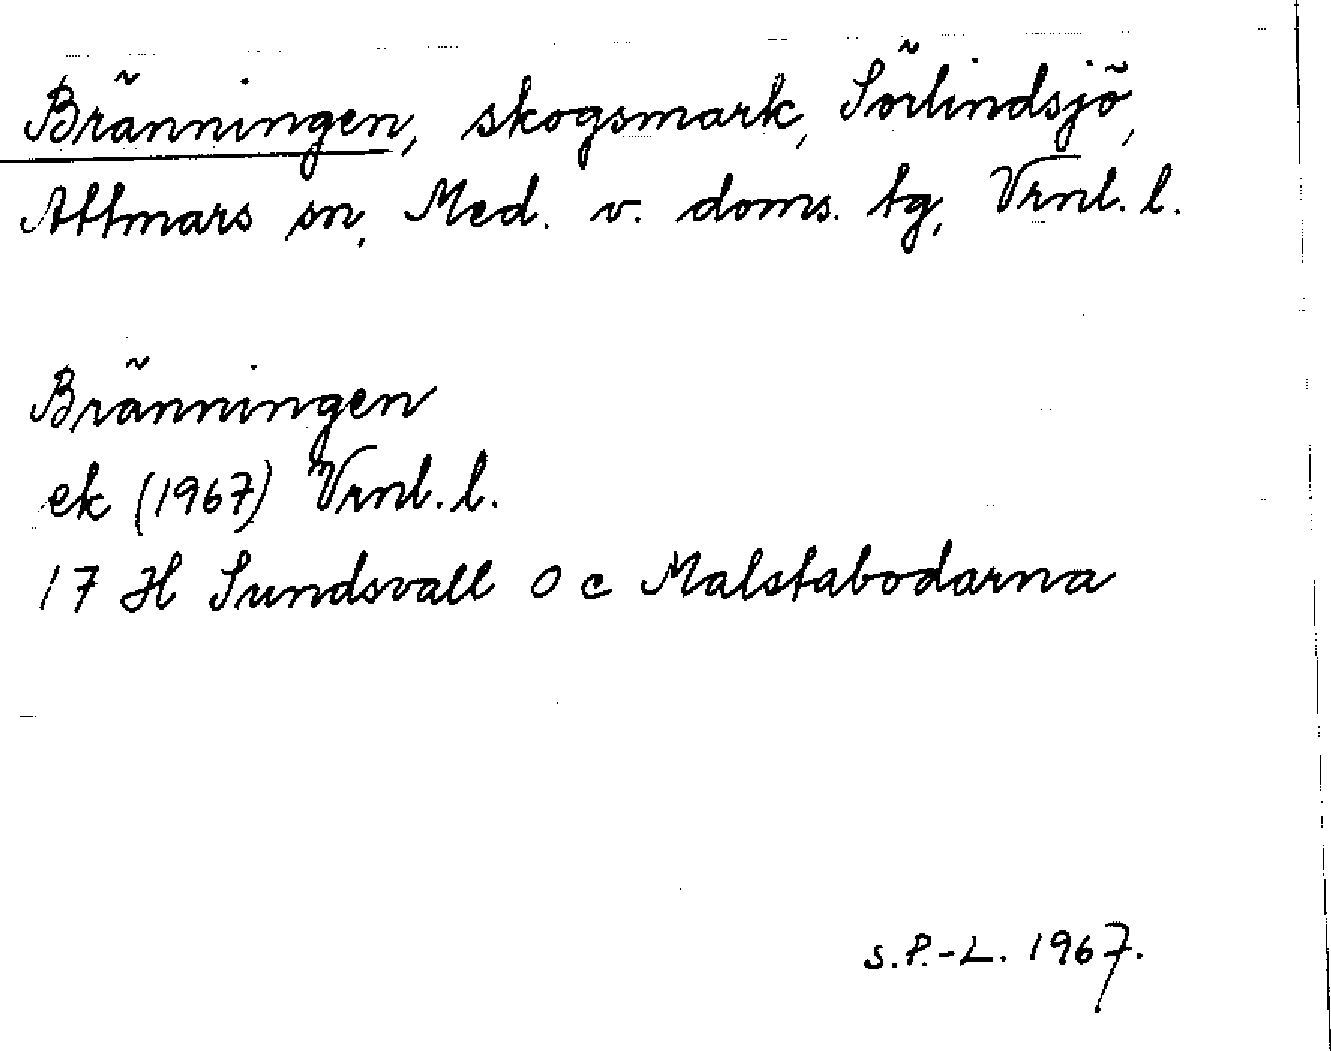 Bränningen, skogsmark, Sörlindsjö,
Attmars sn, Med. v. doms. tg, Vrnl. l.
Bränningen
ek (1967) Vrnl. l.
17 H Sundsvall 0 c Malstabodarna
S.P.-L. 1967.